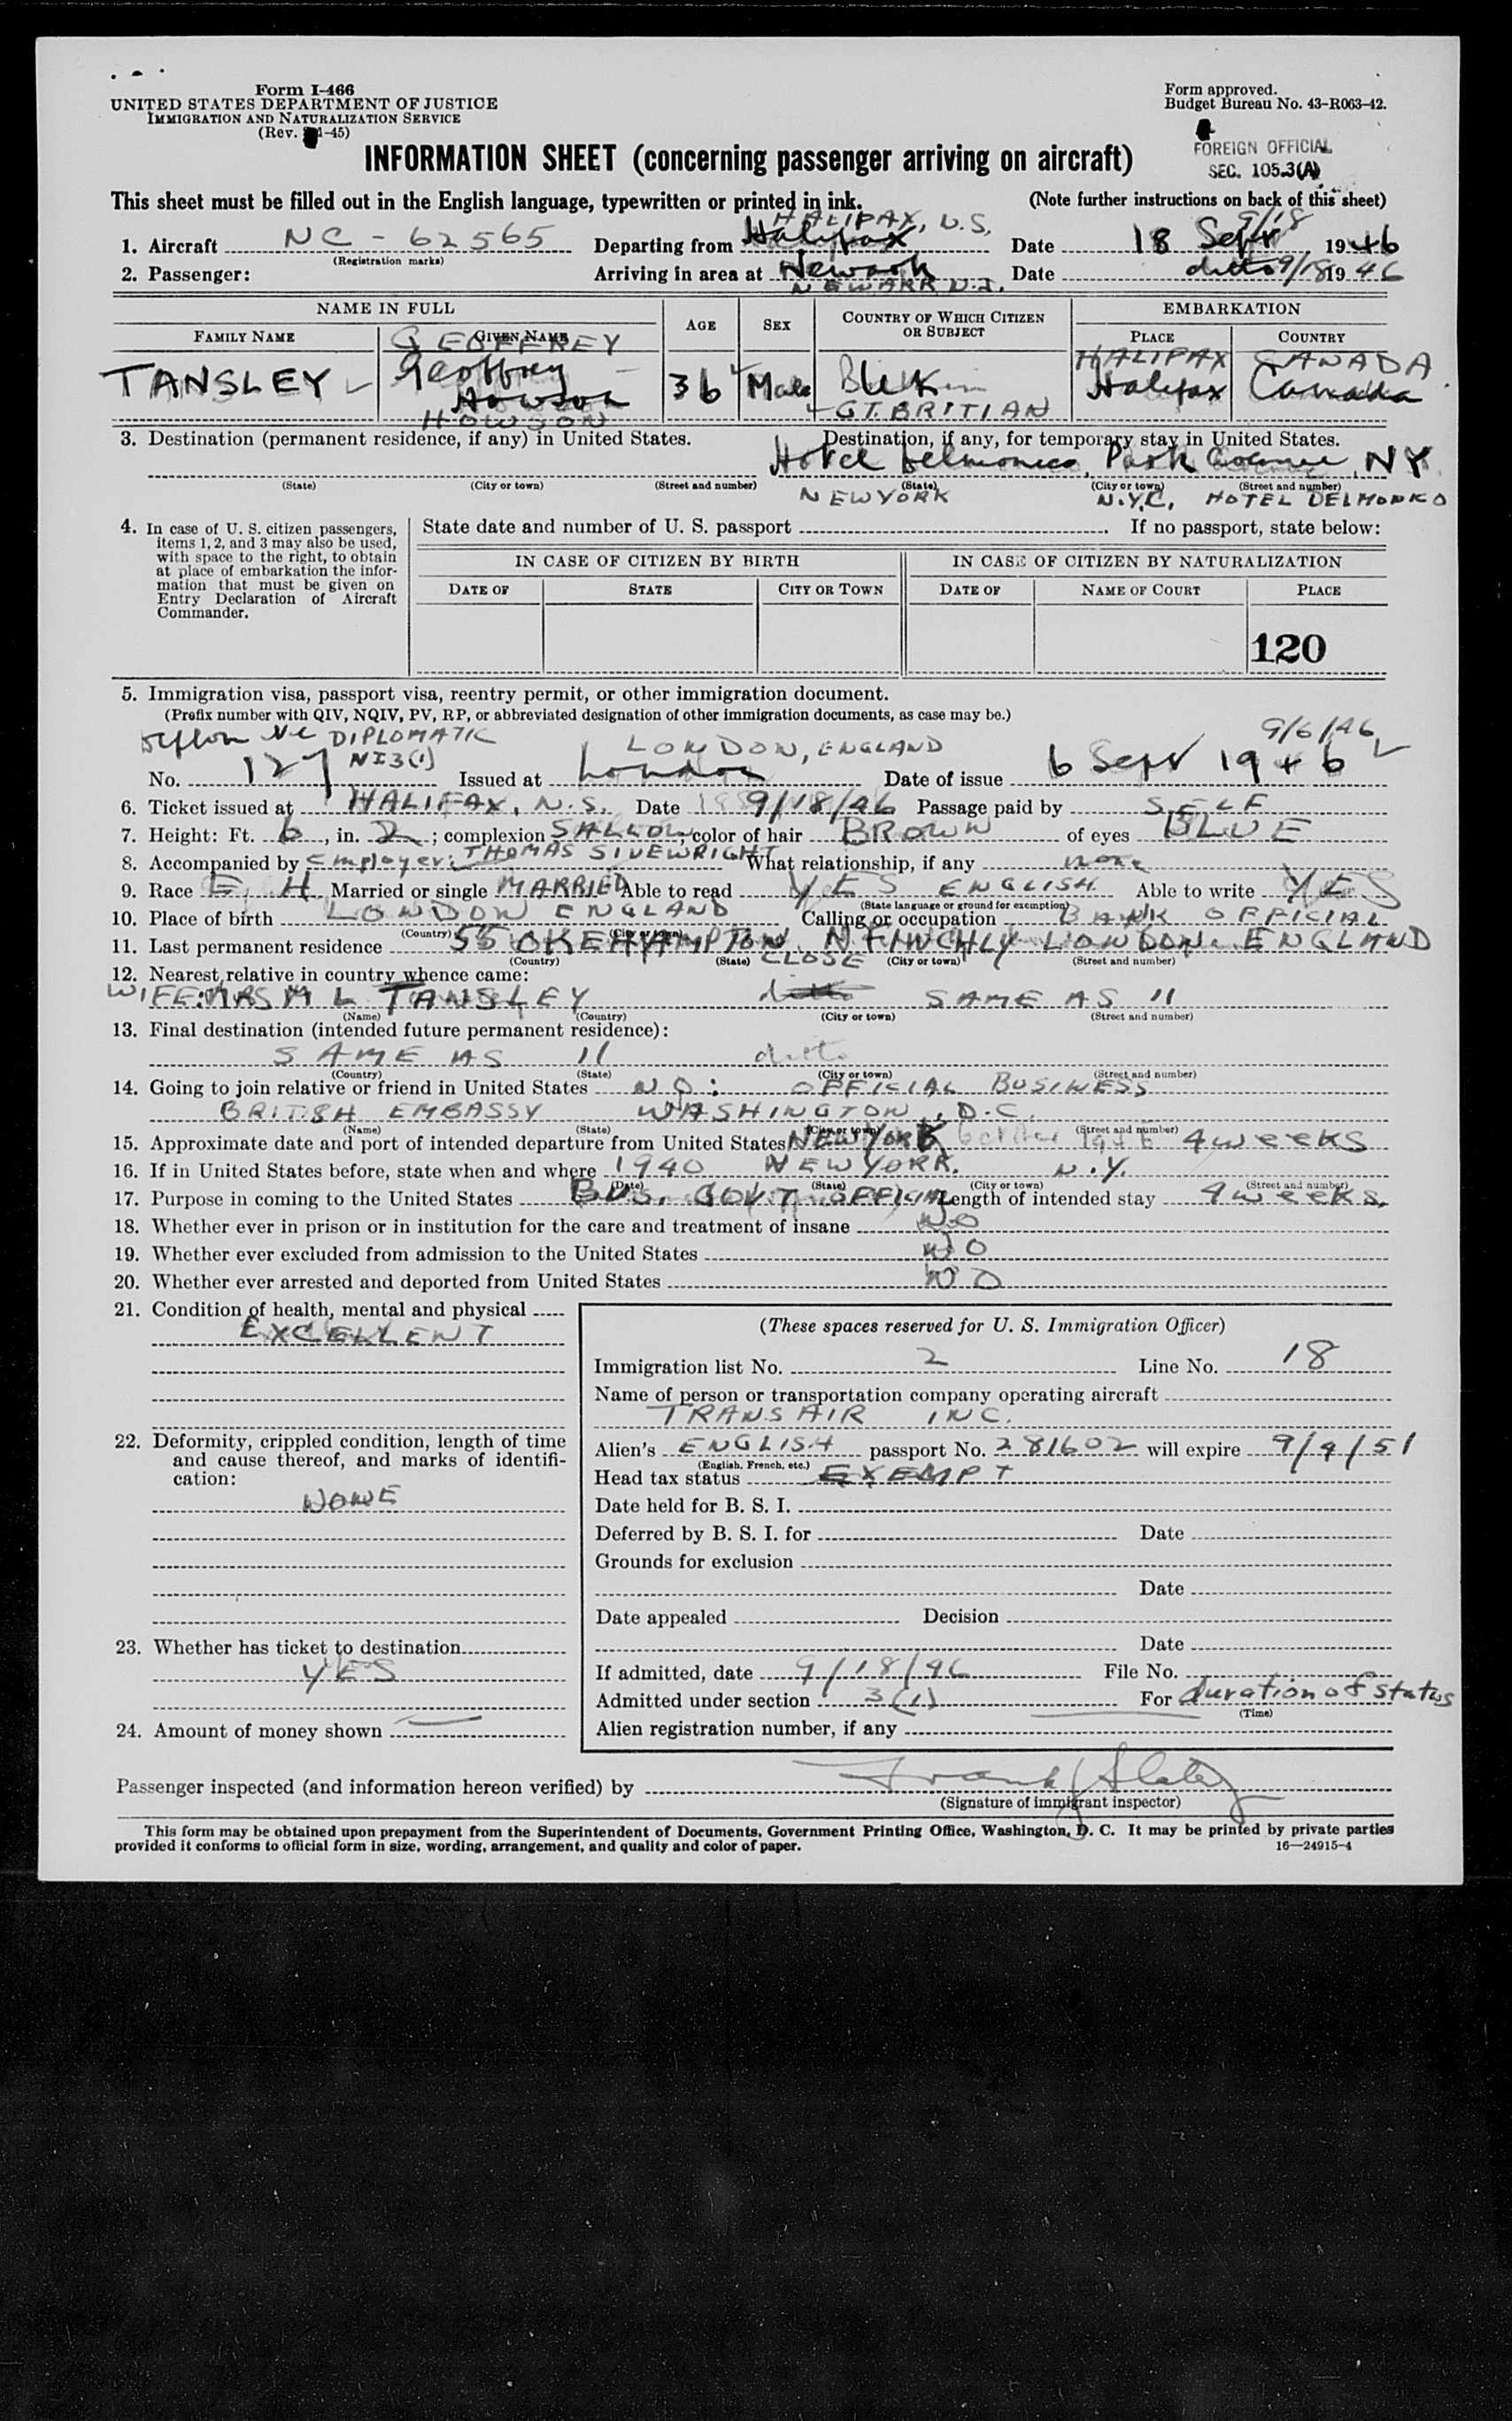 Form I-466
UNITED STATES DEPARTMENT OF JUSTICE
IMMIGRATION AND NATURALIZATION SERVICE
(Rev. 1-45)
Form approved.
Budget Bureau No. 43-R063-42.
FOREIGN OFFICIAL
SEC. 105.3(A)
INFORMATION SHEET (concerning passenger arriving on aircraft)
This sheet must be filled out in the English language, typewritten or printed in ink. (Note further instructions on back of this sheet)
HALIFAX, N.S. 9/18
1. Aircraft NC - 62565 Departing from Halifax Date 18 Sept 1946
(Registration marks)
2. Passenger: Arriving in area at Newark Date ditto 9/18 1946
NEWARK N.J.
NAME IN FULL AGE SEX COUNTRY OF WHICH CITIZEN OR SUBJECT EMBARKATION
FAMILY NAME GIVEN NAME PLACE COUNTRY
GEOFFREY HALIFAX CANADA
TANSLEY Geoffrey Howson 36 Male Halifax Canada
HOWSON GT. BRITIAN
3. Destination (permanent residence, if any) in United States. Destination, if any, for temporary stay in United States.
Hotel Delmonico, Park Avenue, NY
(State) (City or town) (Street and number) (State) (City or town) (Street and number)
NEW YORK N.Y.C. HOTEL DELMONKO
4. In case of U. S. citizen passengers, items 1, 2, and 3 may also be used, with space to the right, to obtain at place of embarkation the information that must be given on Entry Declaration of Aircraft Commander.
State date and number of U. S. passport If no passport, state below:
IN CASE OF CITIZEN BY BIRTH IN CASE OF CITIZEN BY NATURALIZATION
DATE OF STATE CITY OR TOWN DATE OF NAME OF COURT PLACE
120
5. Immigration visa, passport visa, reentry permit, or other immigration document.
(Prefix number with QIV, NQIV, PV, RP, or abbreviated designation of other immigration documents, as case may be.)
DIPLOMATIC LONDON, ENGLAND 9/6/46
NI3(1)
No. 127 Issued at London Date of issue 6 Sept 1946
6. Ticket issued at HALIFAX, N.S. Date 9/18/46 Passage paid by SELF
7. Height: Ft. 6, in. 2; complexion SALLOW; color of hair BROWN of eyes BLUE
8. Accompanied by Employer: THOMAS SIVEWRIGHT What relationship, if any none
9. Race E H Married or single MARRIED Able to read YES ENGLISH Able to write YES
(State language or ground for exemption)
10. Place of birth LONDON ENGLAND Calling or occupation BANK OFFICIAL
(Country) (City or town)
11. Last permanent residence 55 OKEHAMPTON CLOSE N. FINCHLY LONDON, ENGLAND
(Country) (State) (City or town) (Street and number)
12. Nearest relative in country whence came:
WIFE: MRS M L TANSLEY ditto SAME AS 11
(Name) (Country) (City or town) (Street and number)
13. Final destination (intended future permanent residence):
SAME AS 11 ditto
(Country) (State) (City or town) (Street and number)
14. Going to join relative or friend in United States NO: OFFICIAL BUSINESS
BRITISH EMBASSY WASHINGTON, D.C.
(Name) (State) (City or town) (Street and number)
15. Approximate date and port of intended departure from United States NEW YORK October 1946 4 weeks
16. If in United States before, state when and where 1940 NEW YORK. N.Y.
(Date) (State) (City or town) (Street and number)
17. Purpose in coming to the United States BUS. GOV'T OFFICIAL Length of intended stay 4 weeks.
18. Whether ever in prison or in institution for the care and treatment of insane NO
19. Whether ever excluded from admission to the United States NO
20. Whether ever arrested and deported from United States NO
21. Condition of health, mental and physical
EXCELLENT
22. Deformity, crippled condition, length of time and cause thereof, and marks of identification:
NONE
23. Whether has ticket to destination
YES
24. Amount of money shown —
(These spaces reserved for U. S. Immigration Officer)
Immigration list No. 2 Line No. 18
Name of person or transportation company operating aircraft
TRANSAIR INC.
Alien's ENGLISH passport No. 281602 will expire 9/4/51
(English, French, etc.)
Head tax status EXEMPT
Date held for B. S. I.
Deferred by B. S. I. for Date
Grounds for exclusion
Date
Date appealed Decision
Date
If admitted, date 9/18/46 File No.
Admitted under section 3(1) For duration of status
(Time)
Alien registration number, if any
Passenger inspected (and information hereon verified) by Frank J Slate
(Signature of immigrant inspector)
This form may be obtained upon prepayment from the Superintendent of Documents, Government Printing Office, Washington, D. C. It may be printed by private parties
provided it conforms to official form in size, wording, arrangement, and quality and color of paper. 16—24915-4